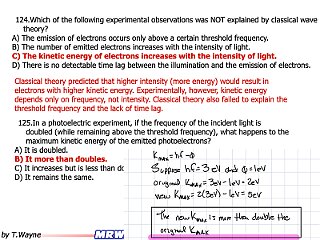 124.Which of the following experimental observations was NOT explained by classical wave
theory?
A) The emission of electrons occurs only above a certain threshold frequency.
B) The number of emitted electrons increases with the intensity of light.
C) The kinetic energy of electrons increases with the intensity of light.
D) There is no detectable time lag between the illumination and the emission of electrons.
Classical theory predicted that higher intensity (more energy) would result in
electrons with higher kinetic energy. Experimentally, however, kinetic energy
depends only on frequency, not intensity. Classical theory also failed to explain the
threshold frequency and the lack of time lag.
125.In a photoelectric experiment, if the frequency of the incident light is
doubled (while remaining above the threshold frequency), what happens to the
maximum kinetic energy of the emitted photoelectrons?
A) It is doubled.
B) It more than doubles.
C) It increases but is less than do
D) It remains the same.
Kmax = hf - Φ
Suppose hf = 3 eV and Φ = 1eV
original Kmax = 3eV - 1eV = 2eV
new Kmax = 2(3eV) - 1eV = 5eV
The new Kmax is more than double the
original Kmax
by T.Wayne
MRW